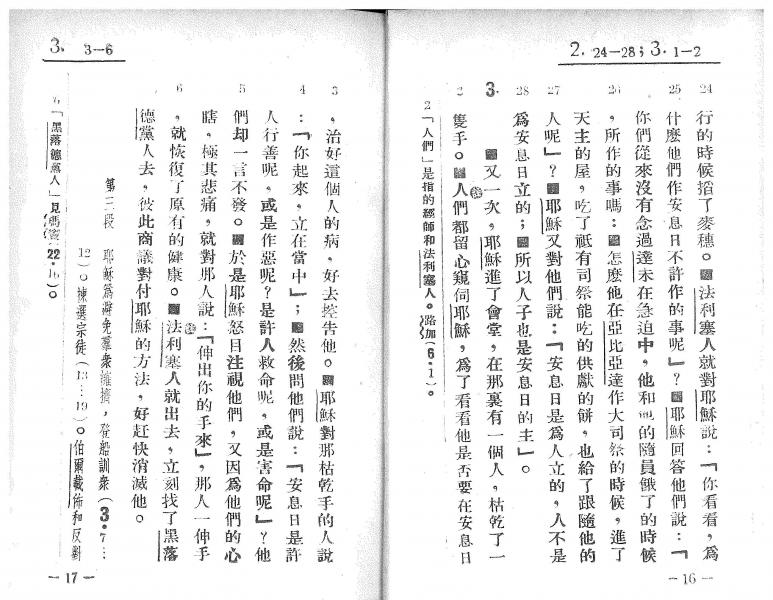 2. 24—28；3. 1—2
24 行的時候搯了麥穗。■法利塞人就對耶穌說：「你看看，爲
25 什麽他們作安息日不許作的事呢」？■耶穌回答他們說：「
你們從來沒有念過達未在急迫中，他和他的隨員餓了的時候
26 ，所作的事嗎：■怎麽他在亞比亞達作大司祭的時候，進了
天主的屋，吃了祇有司祭能吃的供獻的餅，也給了跟隨他的
27 人呢」？■耶穌又對他們說：「安息日是爲人立的，人不是
28 爲安息日立的；■所以人子也是安息日的主」。
3. ■又一次，耶穌進了會堂，在那裏有一個人，枯乾了一
2 隻手。■人們都留心窺伺耶穌，爲了看看他是否要在安息日
2「人們」是指的經師和法利塞人。路加(6·1)。
— 16 —
3. 3—6
3 ，治好這個人的病，好去控告他。■耶穌對那枯乾手的人說
4 ：「你起來，立在當中」；■然後問他們說：「安息日是許
人行善呢，或是作惡呢？是許人救命呢，或是害命呢」？他
5 們却一言不發。■於是耶穌怒目注視他們，又因爲他們的心
瞎，極其悲痛，就對那人說：「伸出你的手來」，那人一伸手
6 ，就恢復了原有的健康。■法利塞人就出去，立刻找了黑落
德黨人去，彼此商議對付耶穌的方法，好赶快消滅他。
第三段 耶穌爲避免羣衆擁擠，登船訓衆(3·7…
12)。揀選宗徒(13…19)。伯爾載佈和反對
6「黑落德黨人」見瑪竇22·16。
— 17 —